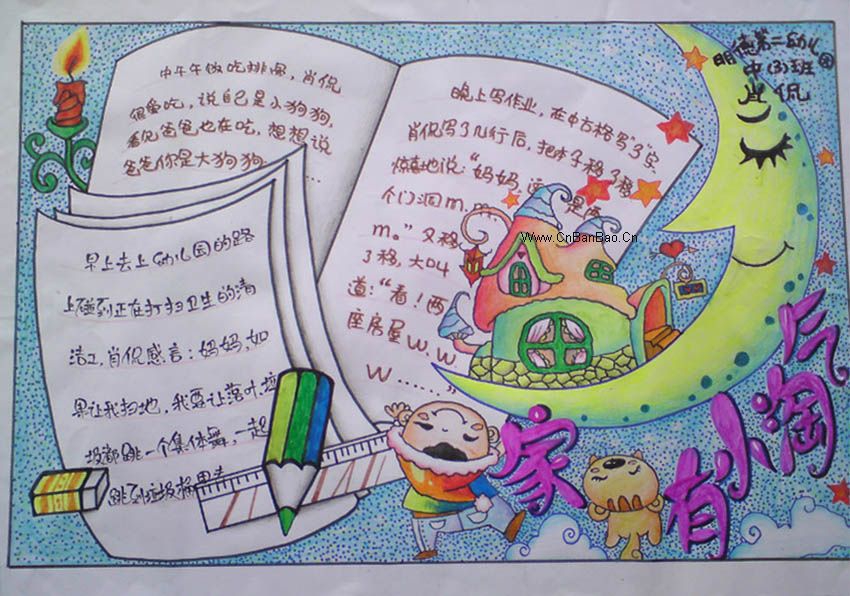 明德第二幼儿园
中(3)班
肖侃
中午午做吃排骨,肖侃
很爱吃,说自己是小狗狗,
看见爸爸也在吃,想想说
爸爸你是大狗狗……
晚上写作业,在中方格写“3”字,
肖侃写了几行后,把本子移了移
惊喜地说:“妈妈,这是两
个门洞m.m
m。”又移
了移,大叫
道:“看!两
座房屋W.W
W……”
早上去上幼儿园的路
上碰到正在打扫卫生的清
洁工,肖侃感言:妈妈,如
果让我扫地,我要让落叶垃
圾都跳一个集体舞,一起
跳到垃圾桶里去
Www.CnBanBao.Cn
家有小淘气